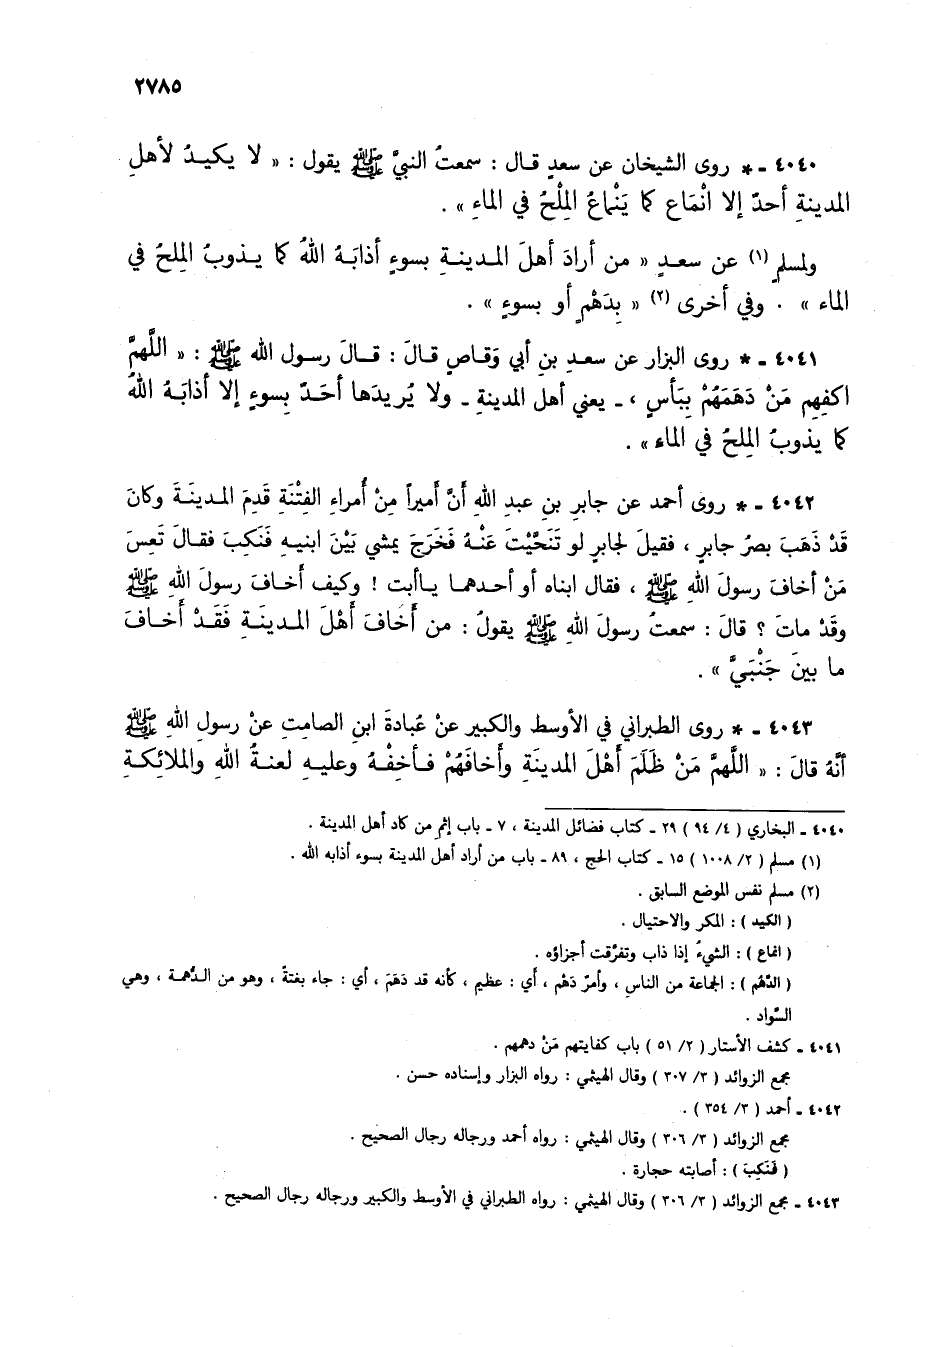 ٢٧٨٥
٤٠٤٠ ـ * روى الشيخان عن سعدٍ قـال : سمعتُ النبيَّ ﷺ يقول : « لا يكيـدُ لأهلِ
المدينةِ أحدٌ إلا انْمَاع كما يَنْماعُ المِلْحُ في الماءِ » .
ولمسلمٍ (١) عن سعـدٍ « من أرادَ أهلَ المـدينـةِ بسوءٍ أذابَـهُ اللهُ كما يـذوبُ الملحُ في
الماء » . وفي أخرى (٢) « بِدَهْمٍ أو بسوءٍ » .
٤٠٤١ ـ * روى البزار عن سعدِ بنِ أبي وَقاصٍ قالَ : قـالَ رسول الله ﷺ : « اللَّهمَّ
اكفِهِم مَنْ دَهَمَهُمْ بِبَأسٍ ، ـ يعني أهل المدينةِ ـ ولا يُريدَها أحَـدٌ بِسوءٍ إلا أذابَـهُ اللهُ
كما يذوبُ المِلحُ في الماء » .
٤٠٤٢ ـ * روى أحمد عن جابرِ بنِ عبدِ اللهِ أنَّ أميراً مِنْ أمراءِ الفِتْنَةِ قَدِمَ المـدينَـةَ وكانَ
قَدْ ذَهَبَ بصرُ جابرٍ ، فقيلَ لجابرٍ لو تَنَحَّيْتَ عَنْـهُ فَخَرَجَ يمشي بَيْنَ ابنيـهِ فَنَكِبَ فقـالَ تَعِسَ
مَنْ أخافَ رسولَ اللهِ ﷺ ، فقال ابناه أو أحـدهمـا يـاأبت ! وكيف أخـافَ رسولَ اللهِ ﷺ
وقَدْ ماتَ ؟ قالَ : سمعتُ رسولَ اللهِ ﷺ يقولُ : من أخَافَ أهْلَ المـدينَـةِ فَقَـدْ أخـافَ
ما بينَ جَنْبَيَّ » .
٤٠٤٣ ـ * روى الطبراني في الأوسط والكبير عنْ عُبادةَ ابنِ الصامتِ عنْ رسولِ اللهِ ﷺ
أنَّهُ قالَ : « اللَّهمَّ مَنْ ظَلَمَ أهْلَ المدينَةِ وأخافَهُمْ فـأخِفْـهُ وعليـهِ لعنـةُ اللهِ والملائكـةِ
٤٠٤٠ ـ البخاري ( ٤/ ٩٤ ) ٢٩ ـ كتاب فضائل المدينة ، ٧ ـ باب إثمِ من كاد أهل المدينة .
(١) مسلم ( ٢/ ١٠٠٨ ) ١٥ ـ كتاب الحج ، ٨٩ ـ باب من أراد أهل المدينة بسوء أذابه الله .
(٢) مسلم نفس الموضع السابق .
( الكيد ) : المكر والاحتيال .
( انماع ) : الشيءُ إذا ذاب وتفرَّقت أجزاؤه .
( الدَّهْم ) : الجماعة من الناسِ ، وأمرٌ دَهْم ، أي : عظيم ، كأنه قد دَهَمَ ، أي : جاء بغتةً ، وهو من الـدُّهمـة ، وهي
السَّواد .
٤٠٤١ ـ كشف الأستار ( ٢/ ٥١ ) باب كفايتهم مَنْ دهمهم .
مجمع الزوائد ( ٣/ ٣٠٧ ) وقال الهيثمي : رواه البزار وإسناده حسن .
٤٠٤٢ ـ أحمد ( ٣/ ٣٥٤ ) .
مجمع الزوائد ( ٣/ ٣٠٦ ) وقال الهيثمي : رواه أحمد ورجاله رجال الصحيح .
( فَنَكِبَ ) : أصابته حجارة .
٤٠٤٣ ـ مجمع الزوائد ( ٣/ ٣٠٦ ) وقال الهيثمي : رواه الطبراني في الأوسط والكبير ورجاله رجال الصحيح .